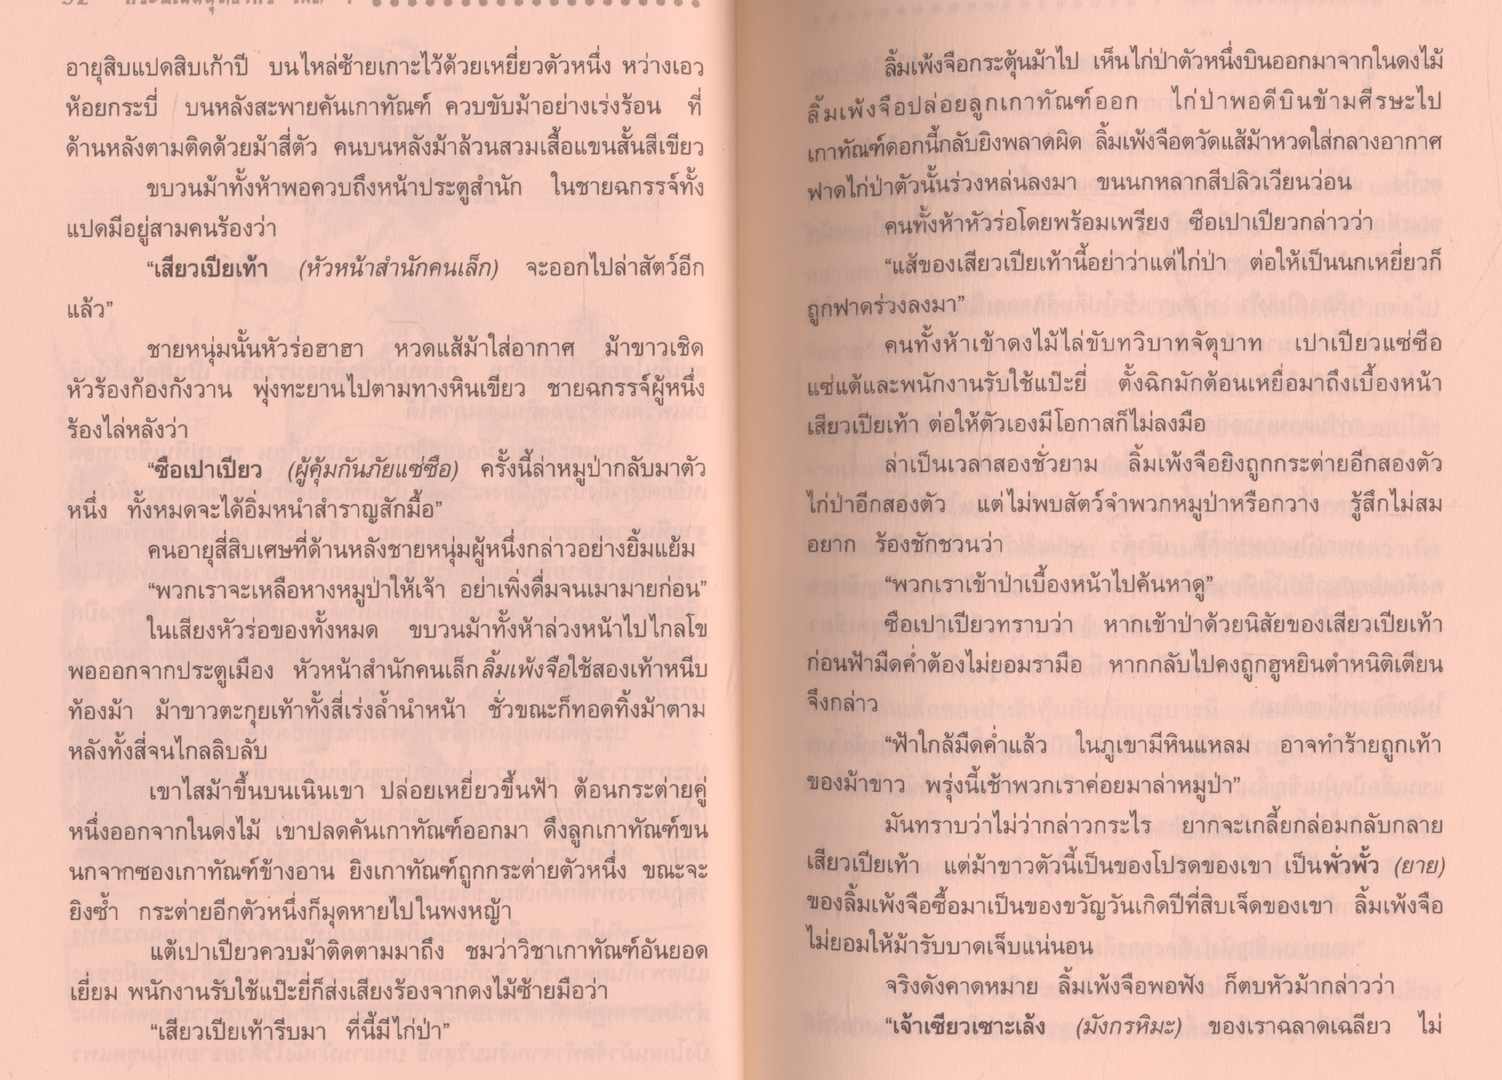 อายุสิบแปดสิบเก้าปี บนไหล่ซ้ายเกาะไว้ด้วยเหยี่ยวตัวหนึ่ง หว่างเอว
ห้อยกระบี่ บนหลังสะพายคันเกาทัณฑ์ ควบขับม้าอย่างเร่งร้อน ที่
ด้านหลังตามติดด้วยม้าสี่ตัว คนบนหลังม้าล้วนสวมเสื้อแขนสั้นสีเขียว
ขบวนม้าทั้งห้าพอควบถึงหน้าประตูสำนัก ในชายฉกรรจ์ทั้ง
แปดมีอยู่สามคนร้องว่า
“เสียวเปียเท้า (หัวหน้าสำนักคนเล็ก) จะออกไปล่าสัตว์อีก
แล้ว”
ชายหนุ่มนั้นหัวร่อฮาฮา หวดแส้ม้าใส่อากาศ ม้าขาวเชิด
หัวร้องก้องกังวาน พุ่งทะยานไปตามทางหินเขียว ชายฉกรรจ์ผู้หนึ่ง
ร้องไล่หลังว่า
“ซือเปาเปียว (ผู้คุ้มกันภัยแซ่ซือ) ครั้งนี้ล่าหมูป่ากลับมาตัว
หนึ่ง ทั้งหมดจะได้อิ่มหนำสำราญสักมื้อ”
คนอายุสี่สิบเศษที่ด้านหลังชายหนุ่มผู้หนึ่งกล่าวอย่างยิ้มแย้ม
“พวกเราจะเหลือหางหมูป่าให้เจ้า อย่าเพิ่งดื่มจนเมามายก่อน”
ในเสียงหัวร่อของทั้งหมด ขบวนม้าทั้งห้าล่วงหน้าไปไกลโข
พอออกจากประตูเมือง หัวหน้าสำนักคนเล็กลิ้มเพ้งจือใช้สองเท้าหนีบ
ท้องม้า ม้าขาวตะกุยเท้าทั้งสี่เร่งล้ำนำหน้า ชั่วขณะก็ทอดทิ้งม้าตาม
หลังทั้งสี่จนไกลลิบลับ
เขาไสม้าขึ้นบนเนินเขา ปล่อยเหยี่ยวขึ้นฟ้า ต้อนกระต่ายคู่
หนึ่งออกจากในดงไม้ เขาปลดคันเกาทัณฑ์ออกมา ดึงลูกเกาทัณฑ์ขน
นกจากซองเกาทัณฑ์ข้างอาน ยิงเกาทัณฑ์ถูกกระต่ายตัวหนึ่ง ขณะจะ
ยิงซ้ำ กระต่ายอีกตัวหนึ่งก็มุดหายไปในพงหญ้า
แต้เปาเปียวควบม้าติดตามมาถึง ชมว่าวิชาเกาทัณฑ์อันยอด
เยี่ยม พนักงานรับใช้แป๊ะยี่ก็ส่งเสียงร้องจากดงไม้ซ้ายมือว่า
“เสียวเปียเท้ารีบมา ที่นี้มีไก่ป่า”
ลิ้มเพ้งจือกระตุ้นม้าไป เห็นไก่ป่าตัวหนึ่งบินออกมาจากในดงไม้
ลิ้มเพ้งจือปล่อยลูกเกาทัณฑ์ออก ไก่ป่าพอดีบินข้ามศีรษะไป
เกาทัณฑ์ดอกนี้กลับยิงพลาดผิด ลิ้มเพ้งจือตวัดแส้ม้าหวดใส่กลางอากาศ
ฟาดไก่ป่าตัวนั้นร่วงหล่นลงมา ขนนกหลากสีปลิวเวียนว่อน
คนทั้งห้าหัวร่อโดยพร้อมเพรียง ซือเปาเปียวกล่าวว่า
“แส้ของเสียวเปียเท้านี้อย่าว่าแต่ไก่ป่า ต่อให้เป็นนกเหยี่ยวก็
ถูกฟาดร่วงลงมา”
คนทั้งห้าเข้าดงไม้ไล่ขับทวิบาทจัตุบาท เปาเปียวแซ่ซือ
แซ่แต้และพนักงานรับใช้แป๊ะยี่ ตั้งฉิกมักต้อนเหยื่อมาถึงเบื้องหน้า
เสียวเปียเท้า ต่อให้ตัวเองมีโอกาสก็ไม่ลงมือ
ล่าเป็นเวลาสองชั่วยาม ลิ้มเพ้งจือยิงถูกกระต่ายอีกสองตัว
ไก่ป่าอีกสองตัว แต่ไม่พบสัตว์จำพวกหมูป่าหรือกวาง รู้สึกไม่สม
อยาก ร้องชักชวนว่า
“พวกเราเข้าป่าเบื้องหน้าไปค้นหาดู”
ซือเปาเปียวทราบว่า หากเข้าป่าด้วยนิสัยของเสียวเปียเท้า
ก่อนฟ้ามืดค่ำต้องไม่ยอมรามือ หากกลับไปคงถูกฮูหยินตำหนิติเตียน
จึงกล่าว
“ฟ้าใกล้มืดค่ำแล้ว ในภูเขามีหินแหลม อาจทำร้ายถูกเท้า
ของม้าขาว พรุ่งนี้เช้าพวกเราค่อยมาล่าหมูป่า”
มันทราบว่าไม่ว่ากล่าวกระไร ยากจะเกลี้ยกล่อมกลับกลาย
เสียวเปียเท้า แต่ม้าขาวตัวนี้เป็นของโปรดของเขา เป็นพั่วพั้ว (ยาย)
ของลิ้มเพ้งจือซื้อมาเป็นของขวัญวันเกิดปีที่สิบเจ็ดของเขา ลิ้มเพ้งจือ
ไม่ยอมให้ม้ารับบาดเจ็บแน่นอน
จริงดังคาดหมาย ลิ้มเพ้งจือพอฟัง ก็ตบหัวม้ากล่าวว่า
“เจ้าเซียวเซาะเล้ง (มังกรหิมะ) ของเราฉลาดเฉลียว ไม่